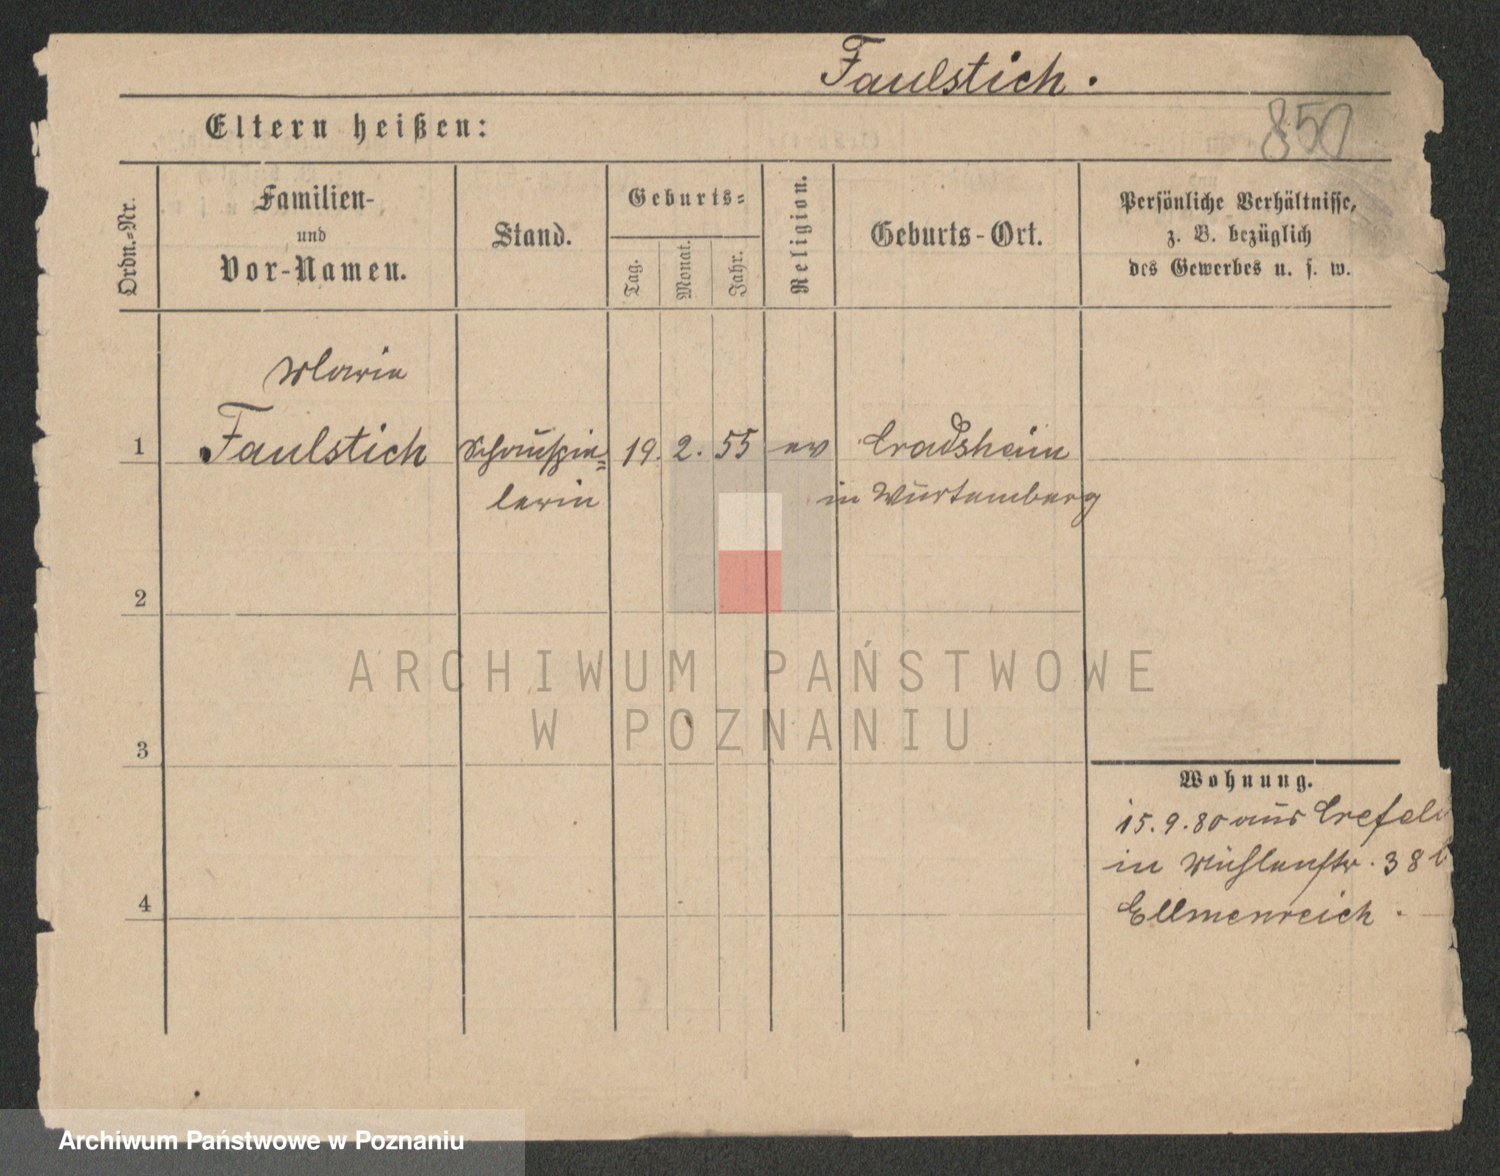 Faulstich.
Eltern heißen:
850
Ordn.-Nr.
Familien-
und
Vor-Namen.
Stand.
Geburts-
Tag.
Monat.
Jahr.
Religion.
Geburts-Ort.
Persönliche Verhältnisse,
z. B. bezüglich
des Gewerbes u. s. w.
Marie
1 Faulstich Schauspie= 19. 2. 55 ev Cradsheim
lerin in Würtemberg
2
3
4
Wohnung.
15.9.80 aus Crefeld
in Mühlenstr. 38
Ellmenreich.
ARCHIWUM PAŃSTWOWE
W POZNANIU
Archiwum Państwowe w Poznaniu